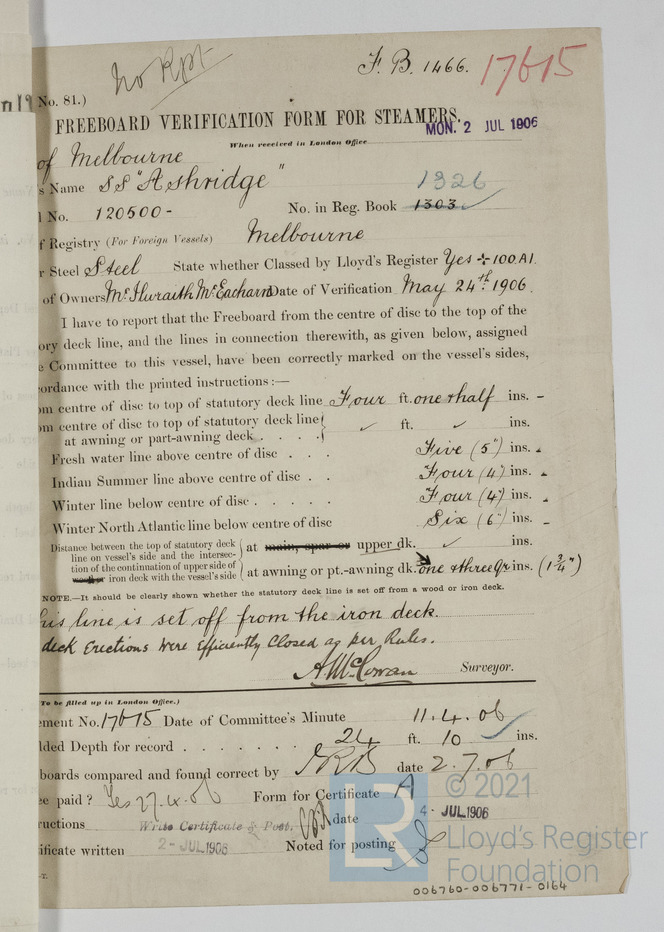 No Rpt
F. B. 1466. 17615
No. 81.)
FREEBOARD VERIFICATION FORM FOR STEAMERS.
MON. 2 JUL 1906
When received in London Office
of Melbourne
s Name SS "Ashridge"
1326
l No. 120500- No. in Reg. Book 1303
f Registry (For Foreign Vessels) Melbourne
r Steel Steel State whether Classed by Lloyd's Register Yes ✠100A1.
of Owners McIlwraith McEacharn Date of Verification May 24th. 1906.
I have to report that the Freeboard from the centre of disc to the top of the
ory deck line, and the lines in connection therewith, as given below, assigned
e Committee to this vessel, have been correctly marked on the vessel's sides,
ordance with the printed instructions :—
om centre of disc to top of statutory deck line Four ft. one & half ins. -
om centre of disc to top of statutory deck line
at awning or part-awning deck . . . . ✓ ft. ✓ ins.
Fresh water line above centre of disc . . . Five (5") ins.
Indian Summer line above centre of disc . . Four (4") ins.
Winter line below centre of disc . . . . . Four (4") ins.
Winter North Atlantic line below centre of disc Six (6") ins. -
Distance between the top of statutory deck
line on vessel's side and the intersec-
tion of the continuation of upper side of
wood or iron deck with the vessel's side
at main, spar or upper dk. ✓ ins.
at awning or pt.-awning dk. one & three Qr ins. (1 3/4")
NOTE.—It should be clearly shown whether the statutory deck line is set off from a wood or iron deck.
his line is set off from the iron deck.
deck Erections Were Efficiently Closed as per Rules.
A McCowan Surveyor.
To be filled up in London Office.)
ement No. 17615 Date of Committee's Minute 11.4.06
lded Depth for record . . . . . . . 24 ft. 10 ins.
boards compared and found correct by date 2.7.06
ee paid ? Yes Form for Certificate A
ructions Write Certificate & Post. date 4- JUL 1906
ificate written 2- JUL 1906 Noted for posting
© 2021
LR
Lloyd's Register
Foundation
006760-006771-0164